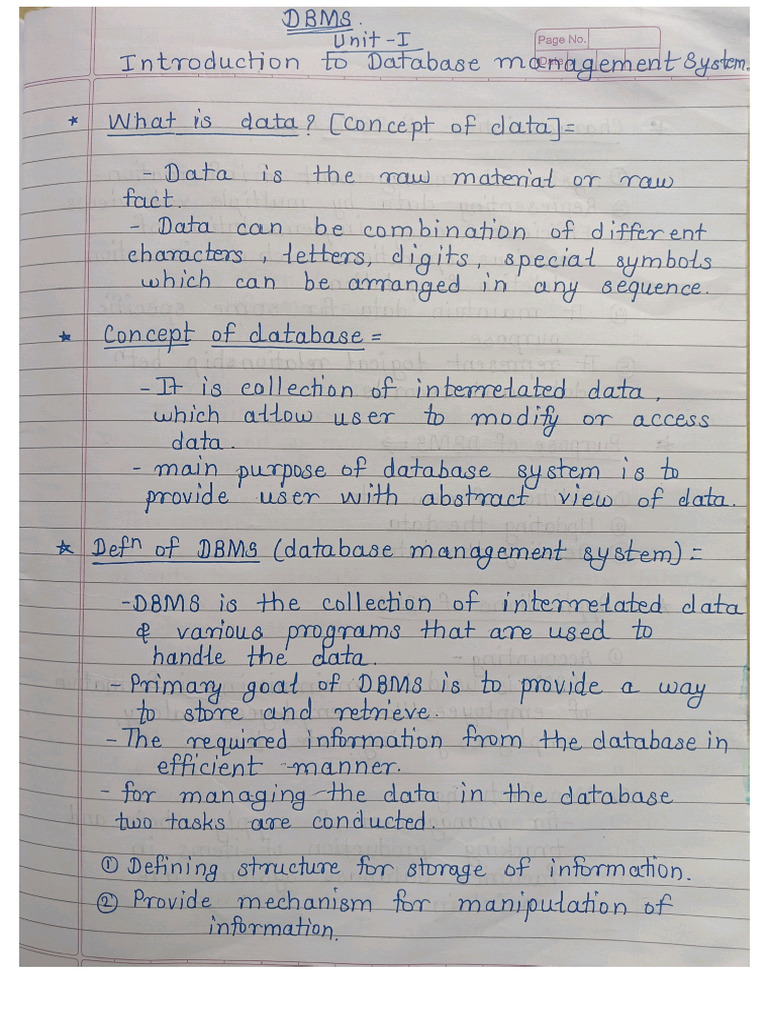 DBMS.
Unit - I
Page No.
Introduction to Database management System.
* What is data? [Concept of data]=
- Data is the raw material or raw
fact.
- Data can be combination of different
characters, letters, digits, special symbols
which can be arranged in any sequence.
* Concept of database =
- It is collection of interrelated data,
which allow user to modify or access
data.
- main purpose of database system is to
provide user with abstract view of data.
* Defn of DBMS (database management system) =
- DBMS is the collection of interrelated data
& various programs that are used to
handle the data.
- Primary goal of DBMS is to provide a way
to store and retrieve.
- The required information from the database in
efficient manner.
- for managing the data in the database
two tasks are conducted.
① Defining structure for storage of information.
② Provide mechanism for manipulation of
information.